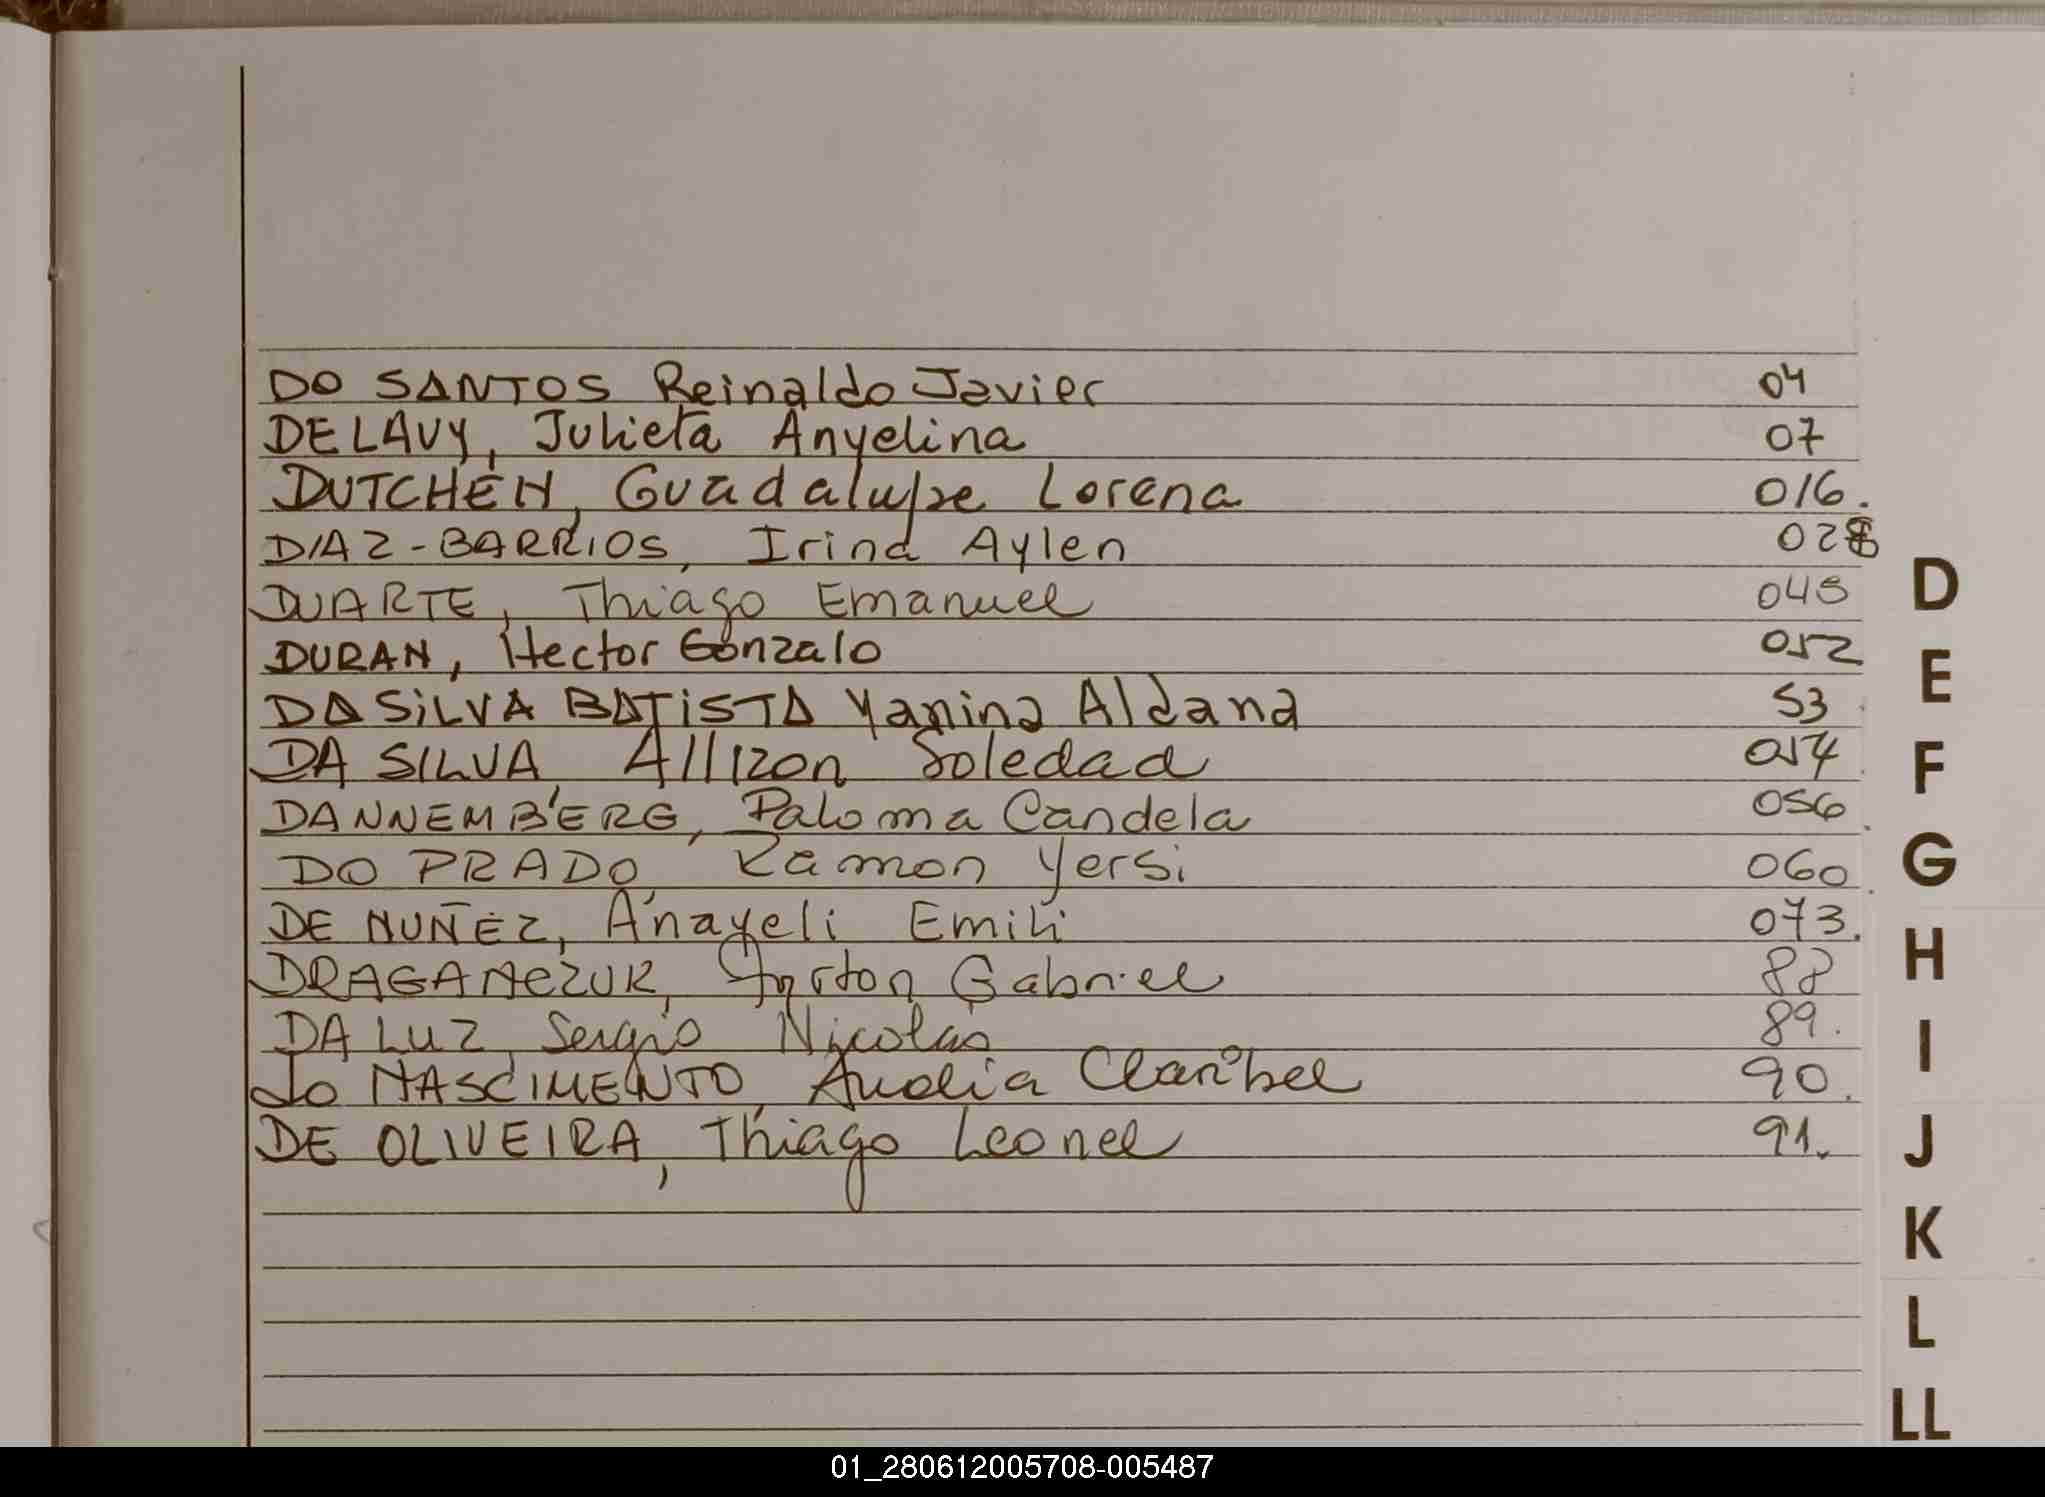 DO SANTOS Reinaldo Javier 04
DELAVY, Julieta Anyelina 07
DUTCHEN, Guadalupe Lorena 016.
DIAZ-BARRIOS, Irina Aylen 028
DUARTE, Thiago Emanuel 048
DURAN, Hector Gonzalo 052
DA SiLVA BATiSTA Yanina Aldana 53
DA SILVA Allizon Soledad 054
DANNEMBERG, Paloma Candela 056
DO PRADO, Ramon Yersi 060
DE NUÑEZ, Anayeli Emili 073.
Gabriel 88
DA LUZ, Sergio Nicolas 89.
do NASCIMENTO, Analia Claribel 90.
DE OLIVEIRA, Thiago Leonel 91.
D
E
F
G
H
I
J
K
L
LL
01_280612005708-005487